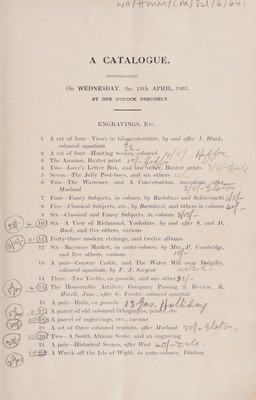 WA/HMM/CM/Sal/6/641
A CATALOGUE.
On WEDNESDAY, the 15th APRIL, 1931,
AT ONE O'CLOCK PRECISELY.
ENGRAVINGS, Etc.
1 A set of four—Views in Gloucestershire, by and after J. Black,
coloured aquatints
2 A set of four—Hunting Scenes, coloured
3 The Amazon, Baxter print
4 Two—Love's Letter Box, and one other, Baxter prints
5 Seven—The Jolly Post-boys, and six others
6 Two—The Warrener, and A Conversation, mezzotints, after
Morland
7 Four—Fancy Subjects, in colours, by Bartolozzi and Schiavonetti
8 Five—Classical Subjects, etc., by Bartolozzi, and others in colours
9 Six—Classical and Fancy Subjects, in colours
10 Six—A View of Richmond, Yorkshire, by and after S. and D.
Buck, and five others, various
11 Forty-three modern etchings, and twelve albums
12 Six—Haymoor Market, in water-colours, by Mrs. P. Cambridge,
and five others, various
13 A pair—Conway Castle, and The Water Mill near Dolgelly,
coloured aquatints, by F. J. Sargent
14 Three—Two Yachts, en gouache, and one other
15 The Honourable Artillery Company Passing in Review, R.
Havell, Junr., after G. Forster, coloured aquatint
16 A pair—Birds, en gouache
17 A parcel of old coloured lithographs, prints, etc.
18 A parcel of engravings, etc., various
19 A set of three coloured reprints, after Morland
20 Two—A South African Scene, and an engraving
21 A pair—Historical Scenes, after West
22 A Wreck off the Isle of Wight, in water-colours, Ibbetson